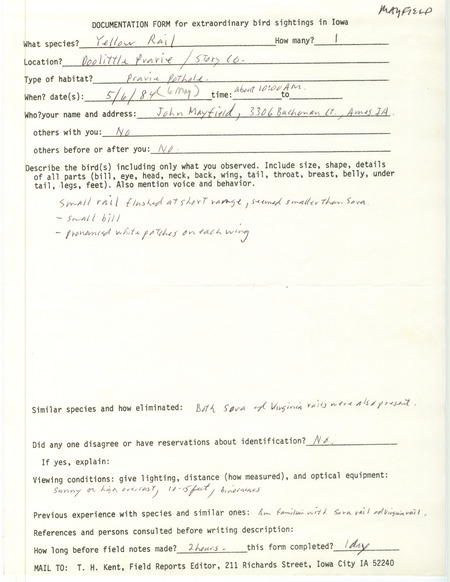 MAYFIELD
DOCUMENTATION FORM for extraordinary bird sightings in Iowa
What species? Yellow Rail How many? 1
Location? Doolittle Prarie / Story Co.
Type of habitat? Prarie Pothole.
When? date(s): 5/6/84 (6 May) time: about 10:00 AM. to
Who?your name and address: John Mayfield, 3306 Buchanan Ct., Ames IA
others with you: No
others before or after you: No.
Describe the bird(s) including only what you observed. Include size, shape, details
of all parts (bill, eye, head, neck, back, wing, tail, throat, breast, belly, under
tail, legs, feet). Also mention voice and behavior.
Small rail flushed at short range, seemed smaller than Sora.
- small bill
- pronounced white patches on each wing
Similar species and how eliminated: Both Sora and Virginia rails were also present.
Did any one disagree or have reservations about identification? No.
If yes, explain:
Viewing conditions: give lighting, distance (how measured), and optical equipment:
Sunny or high overcast, 10-15 feet, binoculars
Previous experience with species and similar ones: Am familiar with Sora rail and Virginia rail.
References and persons consulted before writing description:
How long before field notes made? 2 hours. this form completed? 1 day
MAIL TO: T. H. Kent, Field Reports Editor, 211 Richards Street, Iowa City IA 52240